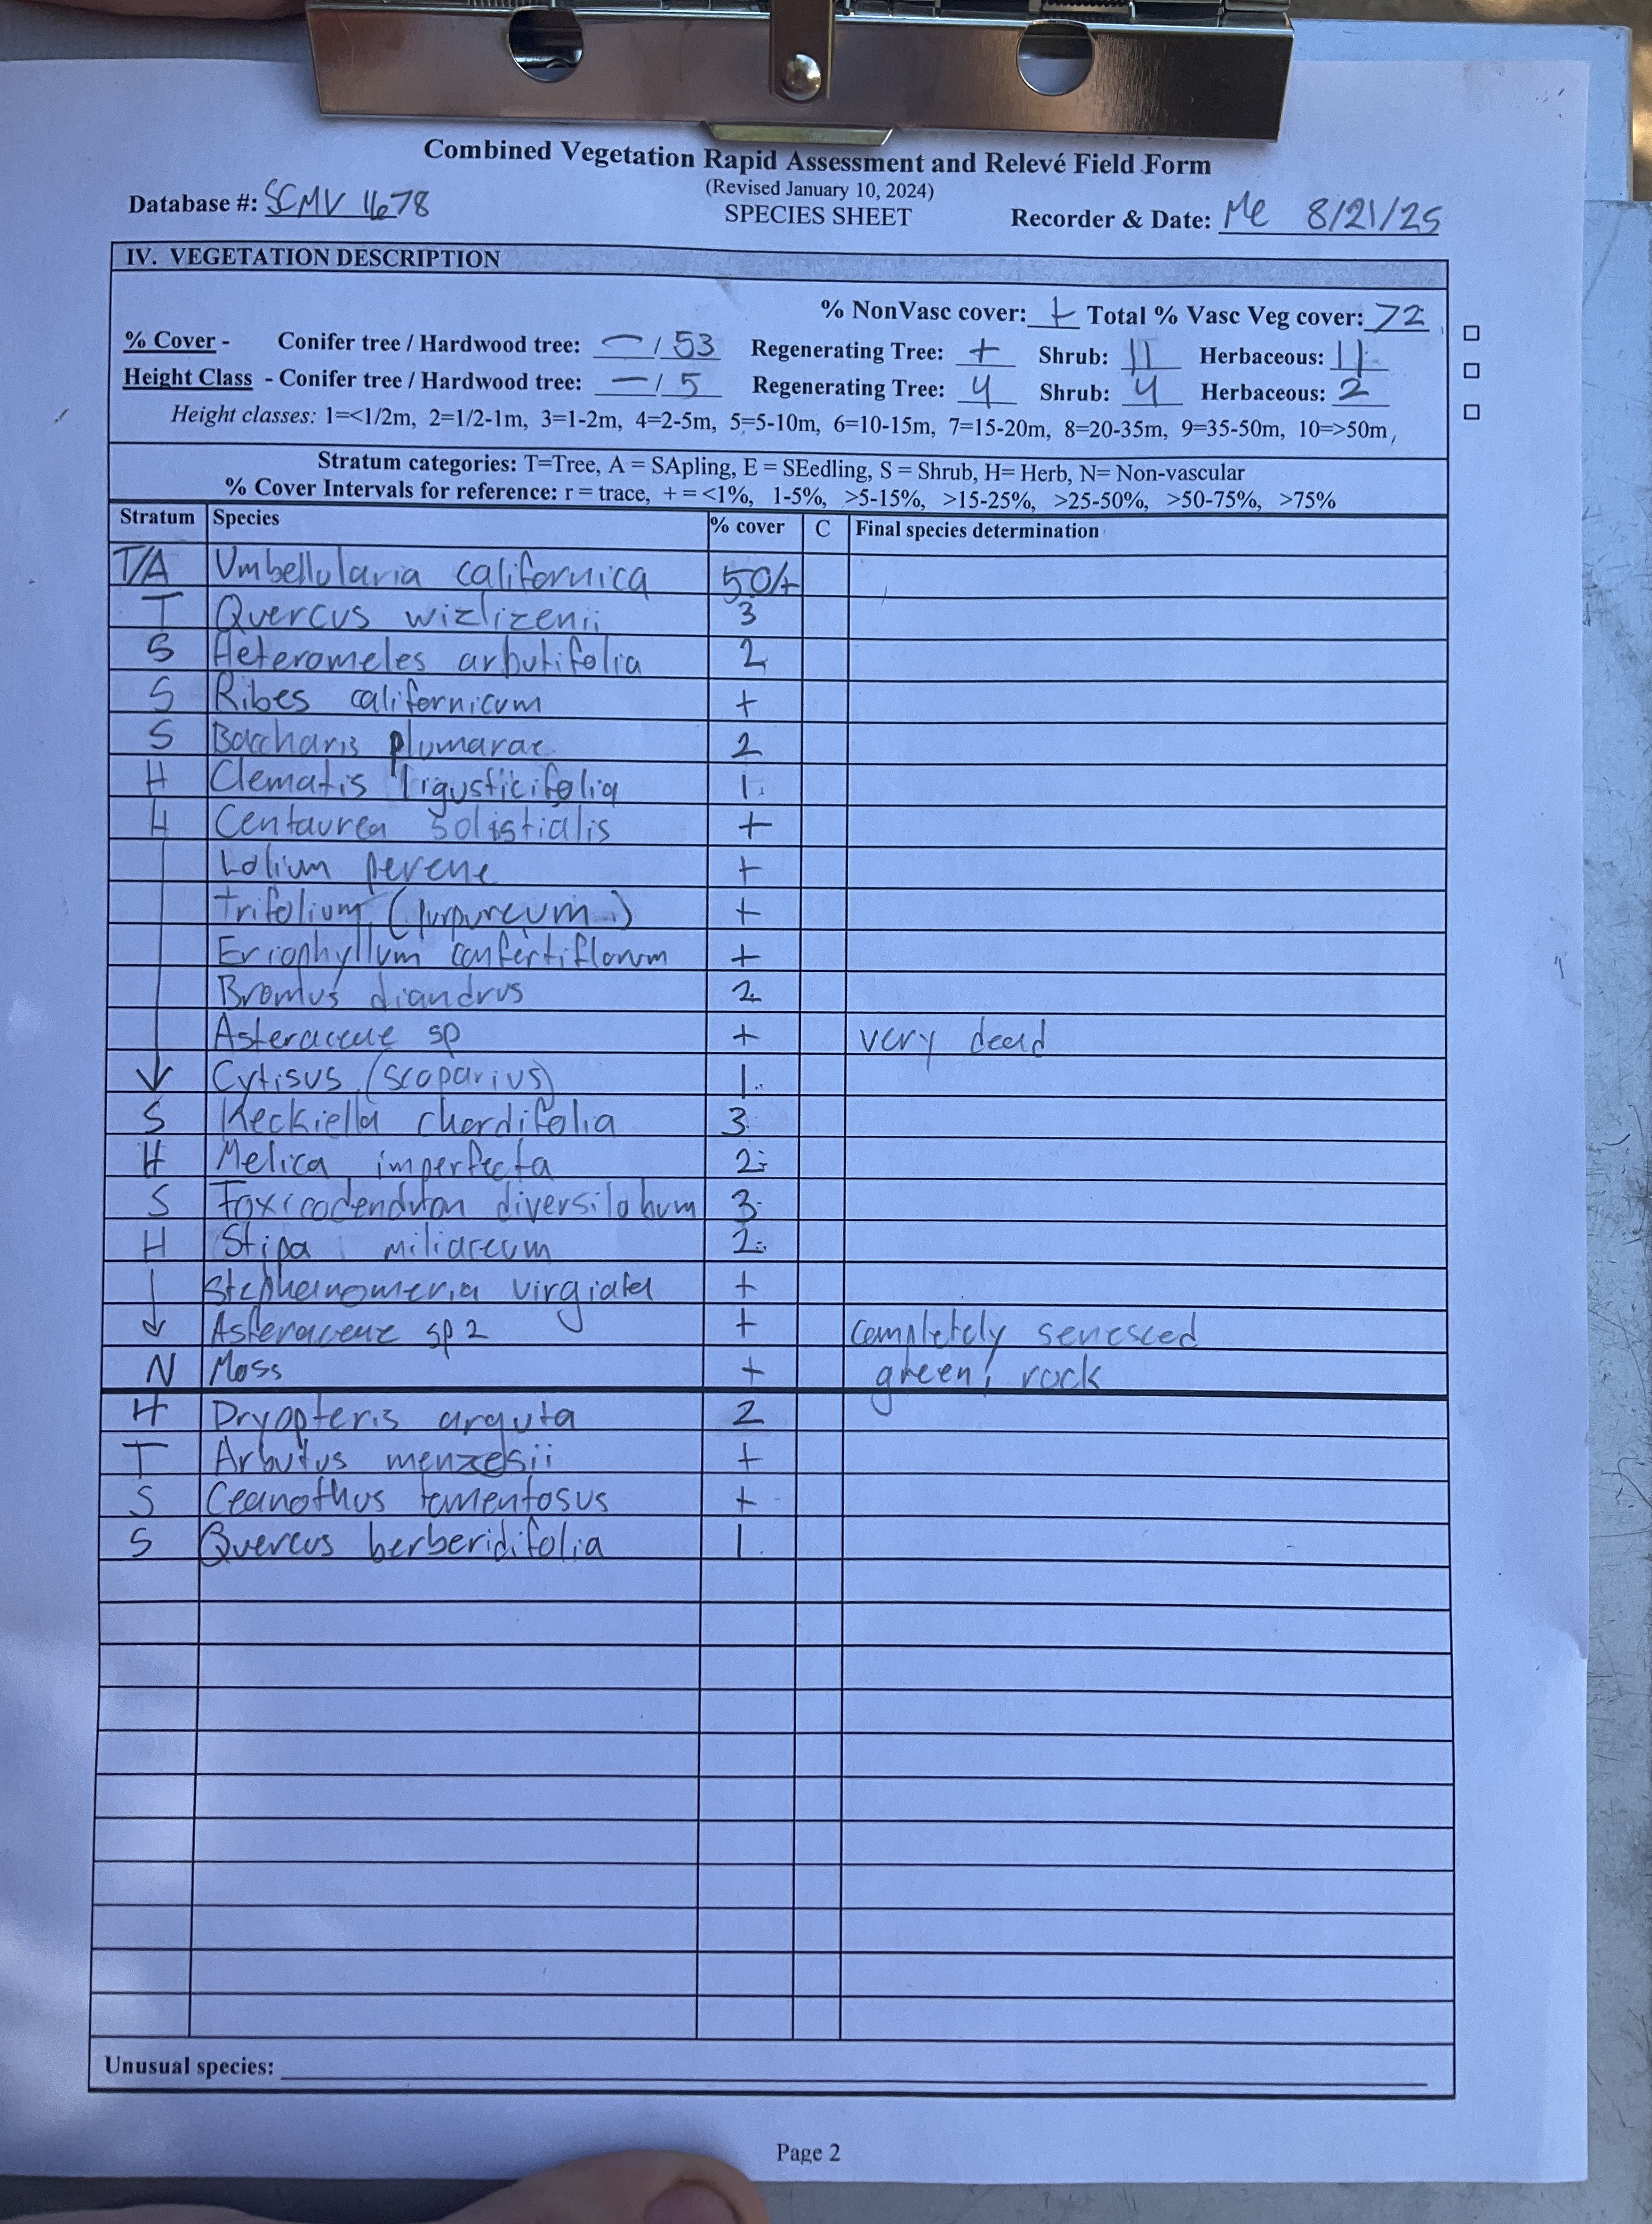 Combined Vegetation Rapid Assessment and Relevé Field Form
(Revised January 10, 2024)
Database #: SCMV 1678 SPECIES SHEET Recorder & Date: Me 8/21/25
IV. VEGETATION DESCRIPTION
% NonVasc cover: + Total % Vasc Veg cover: 72
% Cover - Conifer tree / Hardwood tree: — / 53 Regenerating Tree: + Shrub: 11 Herbaceous: 11
Height Class - Conifer tree / Hardwood tree: — / 5 Regenerating Tree: 4 Shrub: 4 Herbaceous: 2
Height classes: 1=<1/2m, 2=1/2-1m, 3=1-2m, 4=2-5m, 5=5-10m, 6=10-15m, 7=15-20m, 8=20-35m, 9=35-50m, 10=>50m,
Stratum categories: T=Tree, A = SApling, E = SEedling, S = Shrub, H= Herb, N= Non-vascular
% Cover Intervals for reference: r = trace, + = <1%, 1-5%, >5-15%, >15-25%, >25-50%, >50-75%, >75%
Stratum Species % cover C Final species determination
T/A Umbellularia californica 50/+
T Quercus wizlizenii 3
S Heteromeles arbutifolia 2
S Ribes californicum +
S Baccharis plumarae 2
H Clematis ligusticifolia 1
H Centaurea solistialis +
Lolium perene +
Trifolium (purpureum) +
Eriophyllum confertiflorum +
Bromus diandrus 2
Asteraceae sp + very dead
Cytisus (scoparius) 1
S Keckiella chordifolia 3
H Melica imperfecta 2
S Toxicodendron diversilobum 3
H Stipa miliaceum 2
Stephanomeria virgiata +
Asteraceae sp 2 + completely senesced
N Moss + green, rock
H Dryopteris arguta 2
T Arbutus menzesii +
S Ceanothus tomentosus +
S Quercus berberidifolia 1
Unusual species:
Page 2